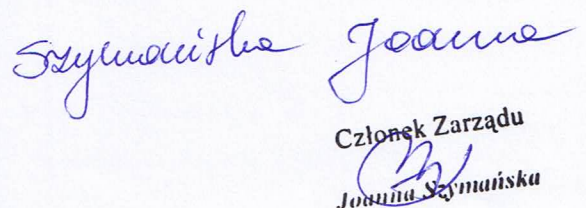 Szymańska Joanna
Członek Zarządu
Joanna Szymańska